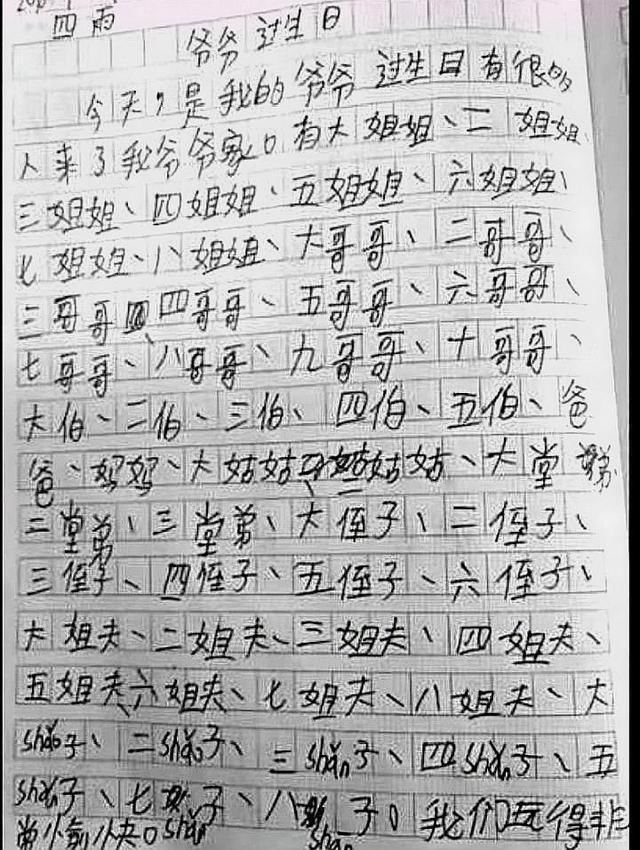 四雨
爷爷过生日
今天，是我的爷爷过生日有很的
人来了我爷爷家。有大姐姐、二姐姐、
三姐姐、四姐姐、五姐姐、六姐姐、
七姐姐、八姐姐、大哥哥、二哥哥、
三哥哥、四哥哥、五哥哥、六哥哥、
七哥哥、八哥哥、九哥哥、十哥哥、
大伯、二伯、三伯、四伯、五伯、爸
爸、妈妈、大姑姑、二姑姑、大堂弟
二堂弟、三堂弟、大侄子、二侄子、
三侄子、四侄子、五侄子、六侄子、
大姐夫、二姐夫、三姐夫、四姐夫、
五姐夫、六姐夫、七姐夫、八姐夫、大
shǎo子、二shǎo子、三shǎn子、四shǎn子、五
shǎn子、七shǎn子、八shǎn子。我们玩得非
常愉快。